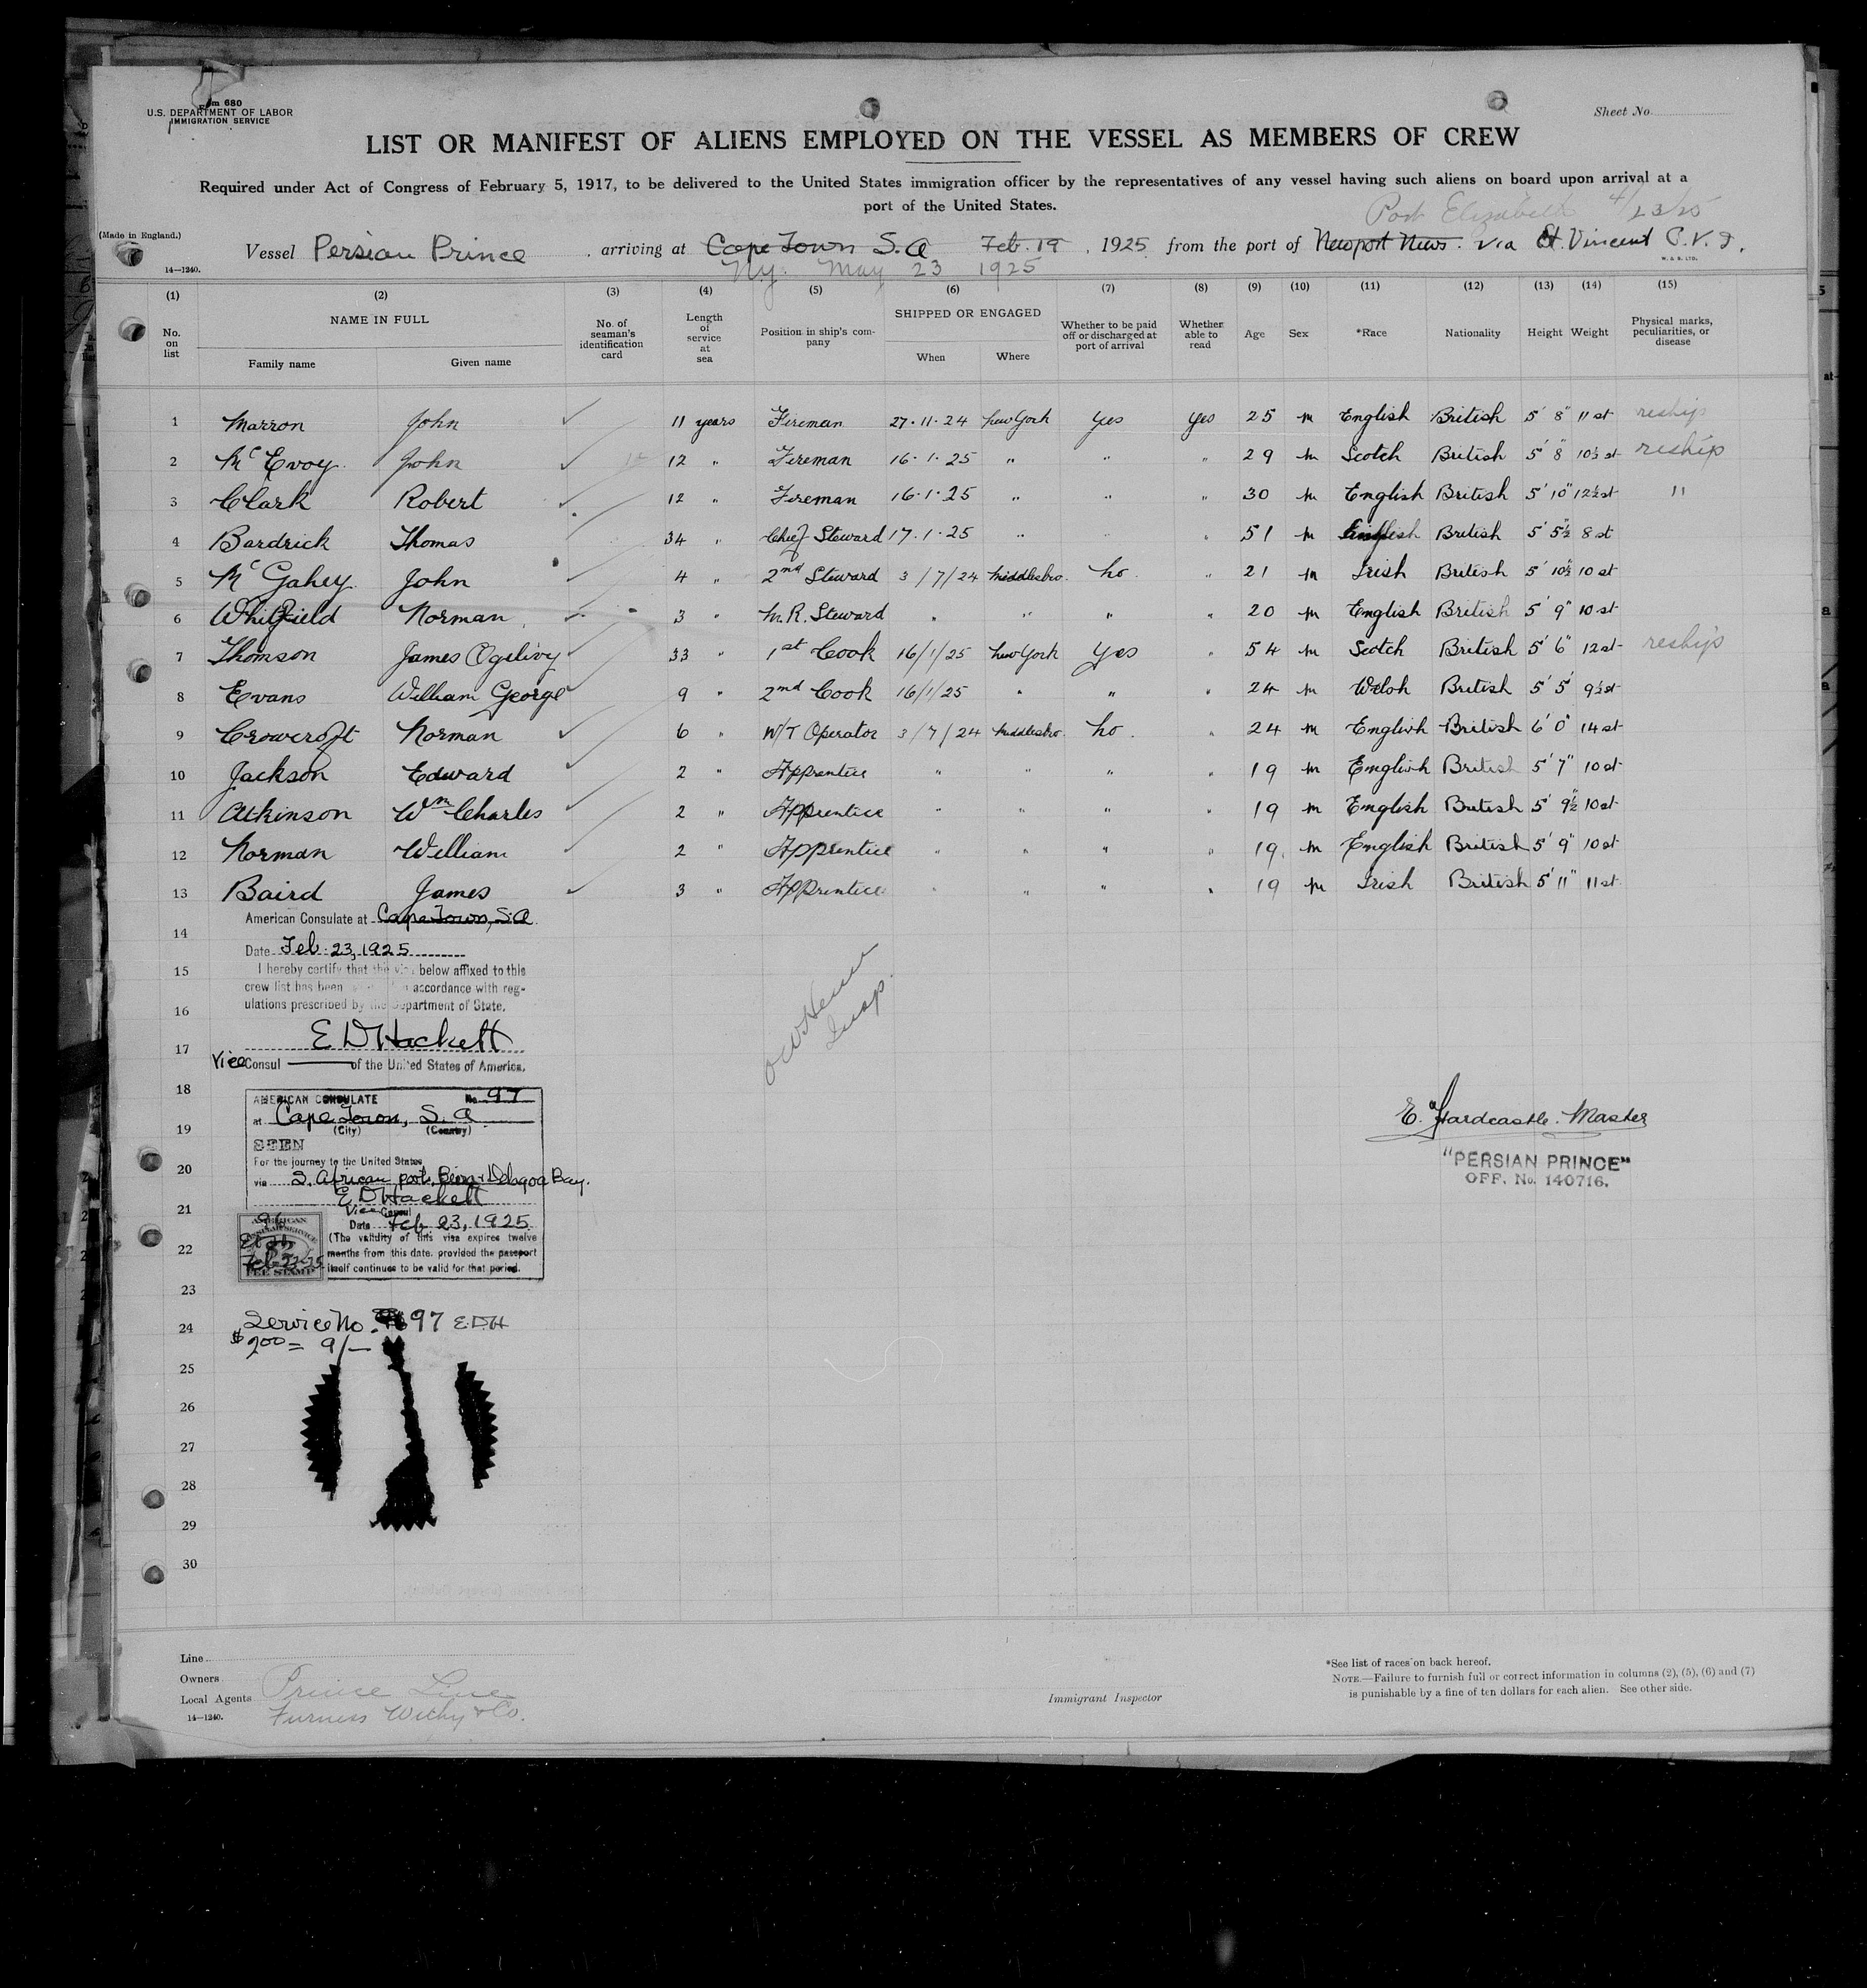 Form 680
U.S. DEPARTMENT OF LABOR
IMMIGRATION SERVICE
Sheet No.
LIST OR MANIFEST OF ALIENS EMPLOYED ON THE VESSEL AS MEMBERS OF CREW
Required under Act of Congress of February 5, 1917, to be delivered to the United States immigration officer by the representatives of any vessel having such aliens on board upon arrival at a
port of the United States.
Port Elizabeth 4/23/25
(Made in England.)
Vessel Persian Prince, arriving at Cape Town S.A Feb. 19, 1925 from the port of Newport News. via St. Vincent C.V.I.
N.y. May 23 1925
14—1240.
W. & S. LTD.
(1) (2) (3) (4) (5) (6) (7) (8) (9) (10) (11) (12) (13) (14) (15)
No. on list NAME IN FULL Family name Given name No. of seaman's identification card Length of service at sea Position in ship's company SHIPPED OR ENGAGED When Where Whether to be paid off or discharged at port of arrival Whether able to read Age Sex *Race Nationality Height Weight Physical marks, peculiarities, or disease
1 Marron John 11 years Fireman 27.11.24 New York Yes Yes 25 M English British 5' 8" 11 st reship
2 McEvoy John 12 " Fireman 16.1.25 " " " 29 M Scotch British 5' 8 10½ st reship
3 Clark Robert 12 " Fireman 16.1.25 " " " 30 M English British 5' 10" 12½ st "
4 Bardrick Thomas 34 " Chief Steward 17.1.25 " " " 51 M English British 5' 5½ 8 st
5 McGahey John 4 " 2nd Steward 3/7/24 Middlesbro. No. " 21 M Irish British 5' 10½ 10 st
6 Whitfield Norman 3 " M.R. Steward " " " " 20 M English British 5' 9" 10 st
7 Thomson James Ogilivy 33 " 1st Cook 16/1/25 New York Yes " 54 M Scotch British 5' 6" 12 st reship
8 Evans William George 9 " 2nd Cook 16/1/25 " " " 24 M Welsh British 5' 5" 9½ st
9 Crowcroft Norman 6 " W/T Operator 3/7/24 Middlesbro. No. " 24 M English British 6' 0" 14 st
10 Jackson Edward 2 " Apprentice " " " " 19 M English British 5' 7" 10 st
11 Atkinson Wm Charles 2 " Apprentice " " " " 19 M English British 5' 9½" 10 st
12 Norman William 2 " Apprentice " " " " 19 M English British 5' 9" 10 st
13 Baird James 3 " Apprentice " " " " 19 M Irish British 5' 11" 11 st
American Consulate at Cape Town, S.A.
14
Date Feb. 23, 1925
15
I hereby certify that the visa below affixed to this
crew list has been accordance with reg-
ulations prescribed by the Department of State.
16
Insp.
E D Hackett
17
Vice Consul of the United States of America.
18
AMERICAN CONSULATE No. 97
at Cape Town, S. A
(City) (Country)
19
SEEN
For the journey to the United States
20
via S. African ports, Beira & Delagoa Bay.
E D Hackett
Vice Consul
21
Date Feb 23, 1925
(The validity of this visa expires twelve
22
months from this date, provided the passport
itself continues to be valid for that period.
AMERICAN
FEE STAMP
E. Hardcastle. Master
"PERSIAN PRINCE"
OFF. No. 140716.
23
24
Service No. 97 E.D.H
$2.00 = 9/-
25
26
27
28
29
30
Line
Owners Prince Line
Local Agents Furness Withy & Co.
14—1240.
Immigrant Inspector
*See list of races on back hereof.
NOTE.—Failure to furnish full or correct information in columns (2), (5), (6) and (7)
is punishable by a fine of ten dollars for each alien. See other side.